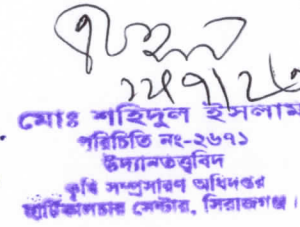 মোঃ শহিদুল ইসলাম
পরিচিতি নং-২৬৭১
উদ্যানতত্ত্ববিদ
কৃষি সম্প্রসারণ অধিদপ্তর
হার্টিকালচার সেন্টার, সিরাজগঞ্জ।